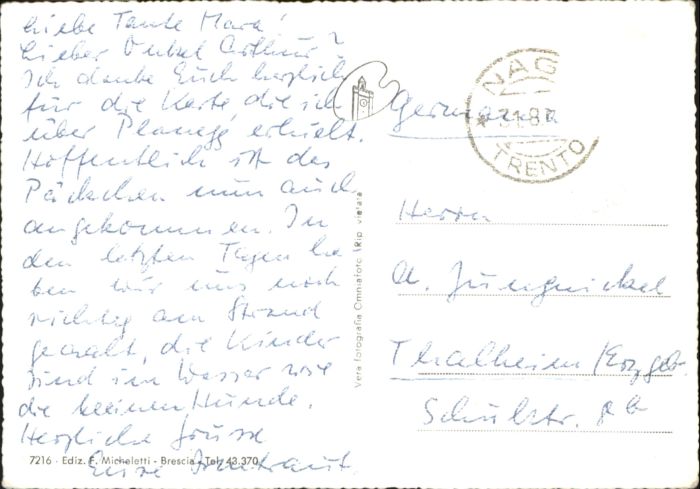 Liebe Tante Mara!
Lieber Onkel Arthur!
Ich danke Euch herzlich
für die Karte, die ich
über Planegg erhielt.
Hoffentlich ist das
Päckchen nun auch
angekommen. In
den letzten Tagen ha
ben wir uns noch
richtig am Strand
geaalt, die Kinder
sind im Wasser wie
die kleinen Hunde.
Herzliche Grüsse
Eure Irmtraut.
7216 - Ediz. F. Micheletti - Brescia - Tel. 43.370
Vera fotografia Omniafoto Rip. vietata
NAG
TRENTO
Germania
Herrn
A. Jungnickel
Thalheim/Erzgeb.
Schulstr. 8b